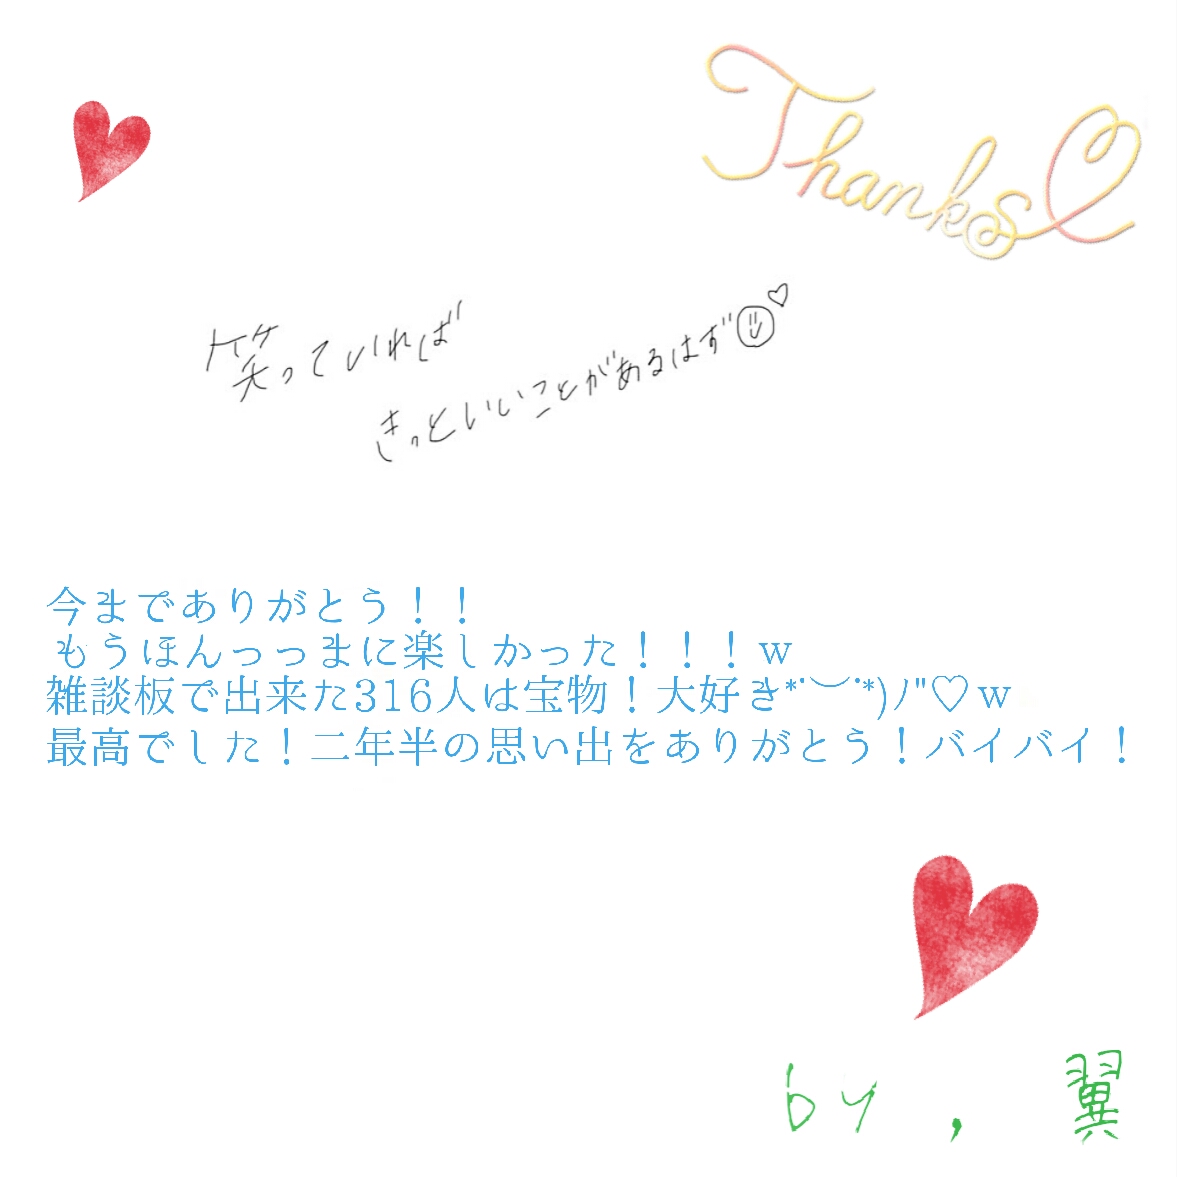 Thanks
笑っていれば
きっといいことがあるはず
今までありがとう！！
もうほんっっまに楽しかった！！！w
雑談板で出来た316人は宝物！大好き*˙︶˙*)ﾉ"♡w
最高でした！二年半の思い出をありがとう！バイバイ！
by , 翼